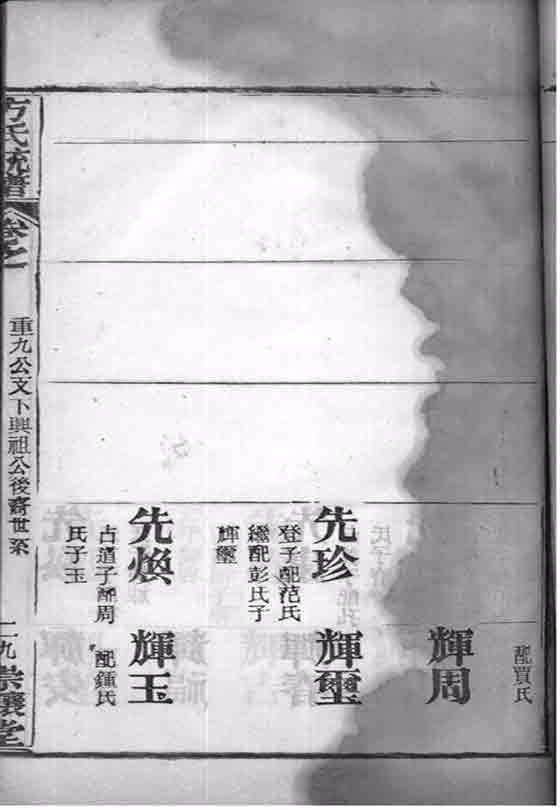 配賈氏
輝周
先珍
登子配范氏
繼配彭氏子
輝璽
輝璽
先煥
古道子配周
氏子玉
輝玉
配鍾氏
方氏統譜
卷之一
重九公文下興祖公後裔世系
一九
堂